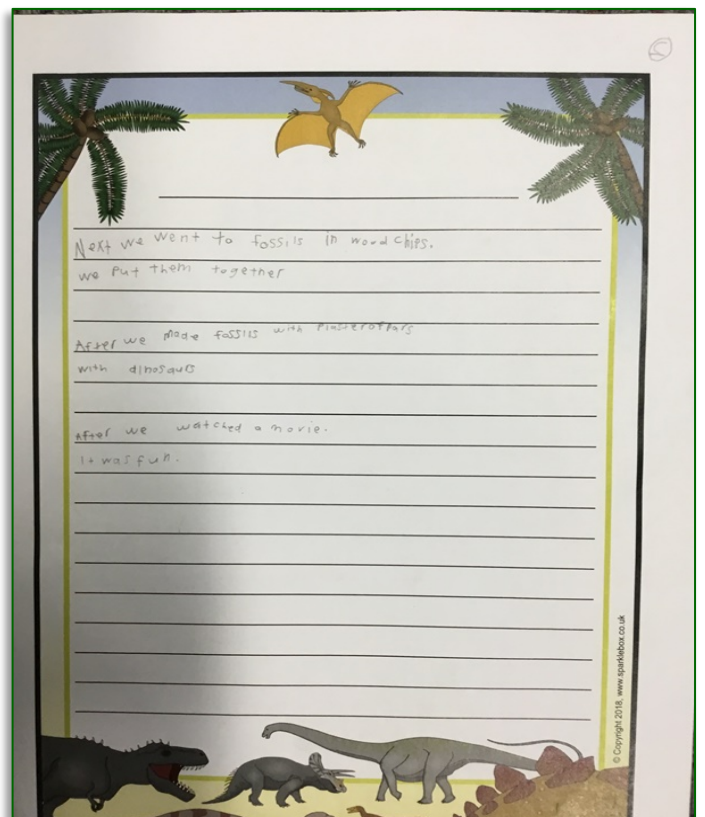 Next we went to fossils in wood chips.
we put them together
After we made fossils with Plasterofpars
with dinosaurs
After we watched a movie.
It was fun.
© Copyright 2018, www.sparklebox.co.uk